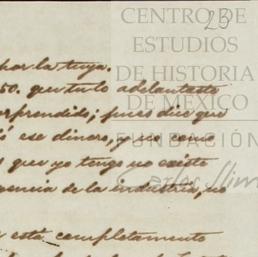 CENTRO DE
ESTUDIOS
DE HISTORIA
DE MÉXICO
FUNDACIÓN
Carlos Slim
23
por la tuya.
50. que tu lo adelantaste
sorprendido; pues dice que
ese dinero, y no como
que yo tengo no existe
de la industria, no
está completamente